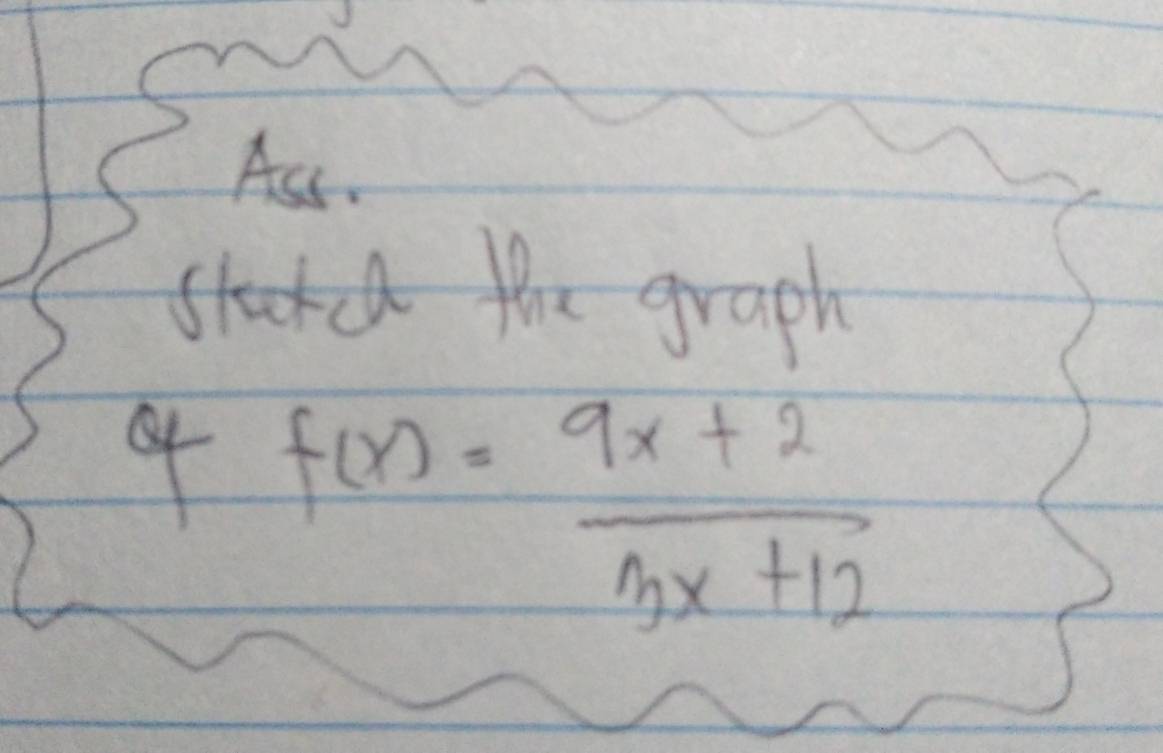 Ass.
Sketch the graph
of f(x) = 9x + 2
3x + 12